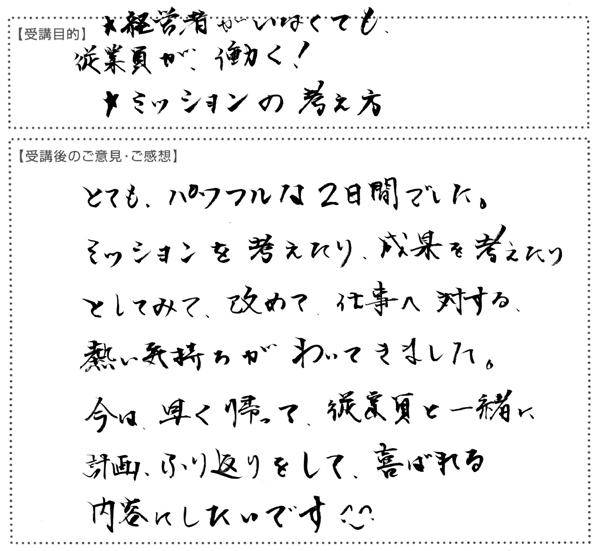 【受講目的】
★経営者がいなくても、
従業員が、働く!
★ミッションの考え方
【受講後のご意見・ご感想】
とても、パワフルな2日間でした。
ミッションを考えたり、成果を考えたり
としてみて、改めて、仕事へ対する、
熱い気持ちがわいてきました。
今は、早く帰って、従業員と一緒に
計画、ふり返りをして、喜ばれる
内容にしたいです^^